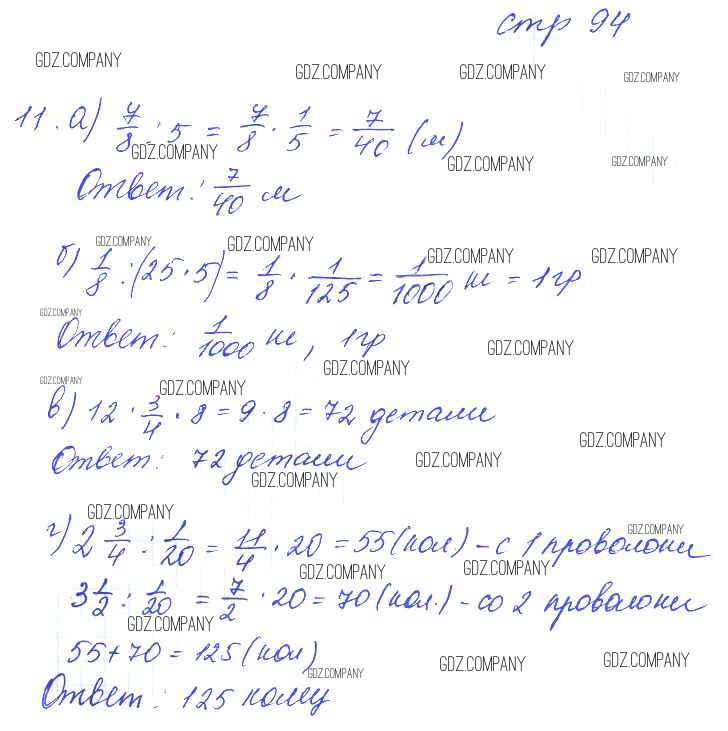 стр 94
GDZ.COMPANY
GDZ.COMPANY GDZ.COMPANY GDZ.COMPANY
11. а) 7/8 : 5 = 7/8 · 1/5 = 7/40 (м)
GDZ.COMPANY GDZ.COMPANY GDZ.COMPANY
Ответ: 7/40 м
GDZ.COMPANY GDZ.COMPANY GDZ.COMPANY GDZ.COMPANY
б) 1/8 : (25 · 5) = 1/8 · 1/125 = 1/1000 кг = 1 гр
GDZ.COMPANY
Ответ: 1/1000 кг, 1 гр
GDZ.COMPANY
GDZ.COMPANY
GDZ.COMPANY GDZ.COMPANY
в) 12 · 3/4 · 8 = 9 · 8 = 72 детали
GDZ.COMPANY
Ответ: 72 детали
GDZ.COMPANY
GDZ.COMPANY
GDZ.COMPANY GDZ.COMPANY
г) 2 3/4 : 1/20 = 11/4 · 20 = 55 (кол) - с 1 проволоки
GDZ.COMPANY GDZ.COMPANY
3 1/2 : 1/20 = 7/2 · 20 = 70 (кол.) - со 2 проволоки
GDZ.COMPANY
55 + 70 = 125 (кол)
GDZ.COMPANY GDZ.COMPANY GDZ.COMPANY
Ответ: 125 колец